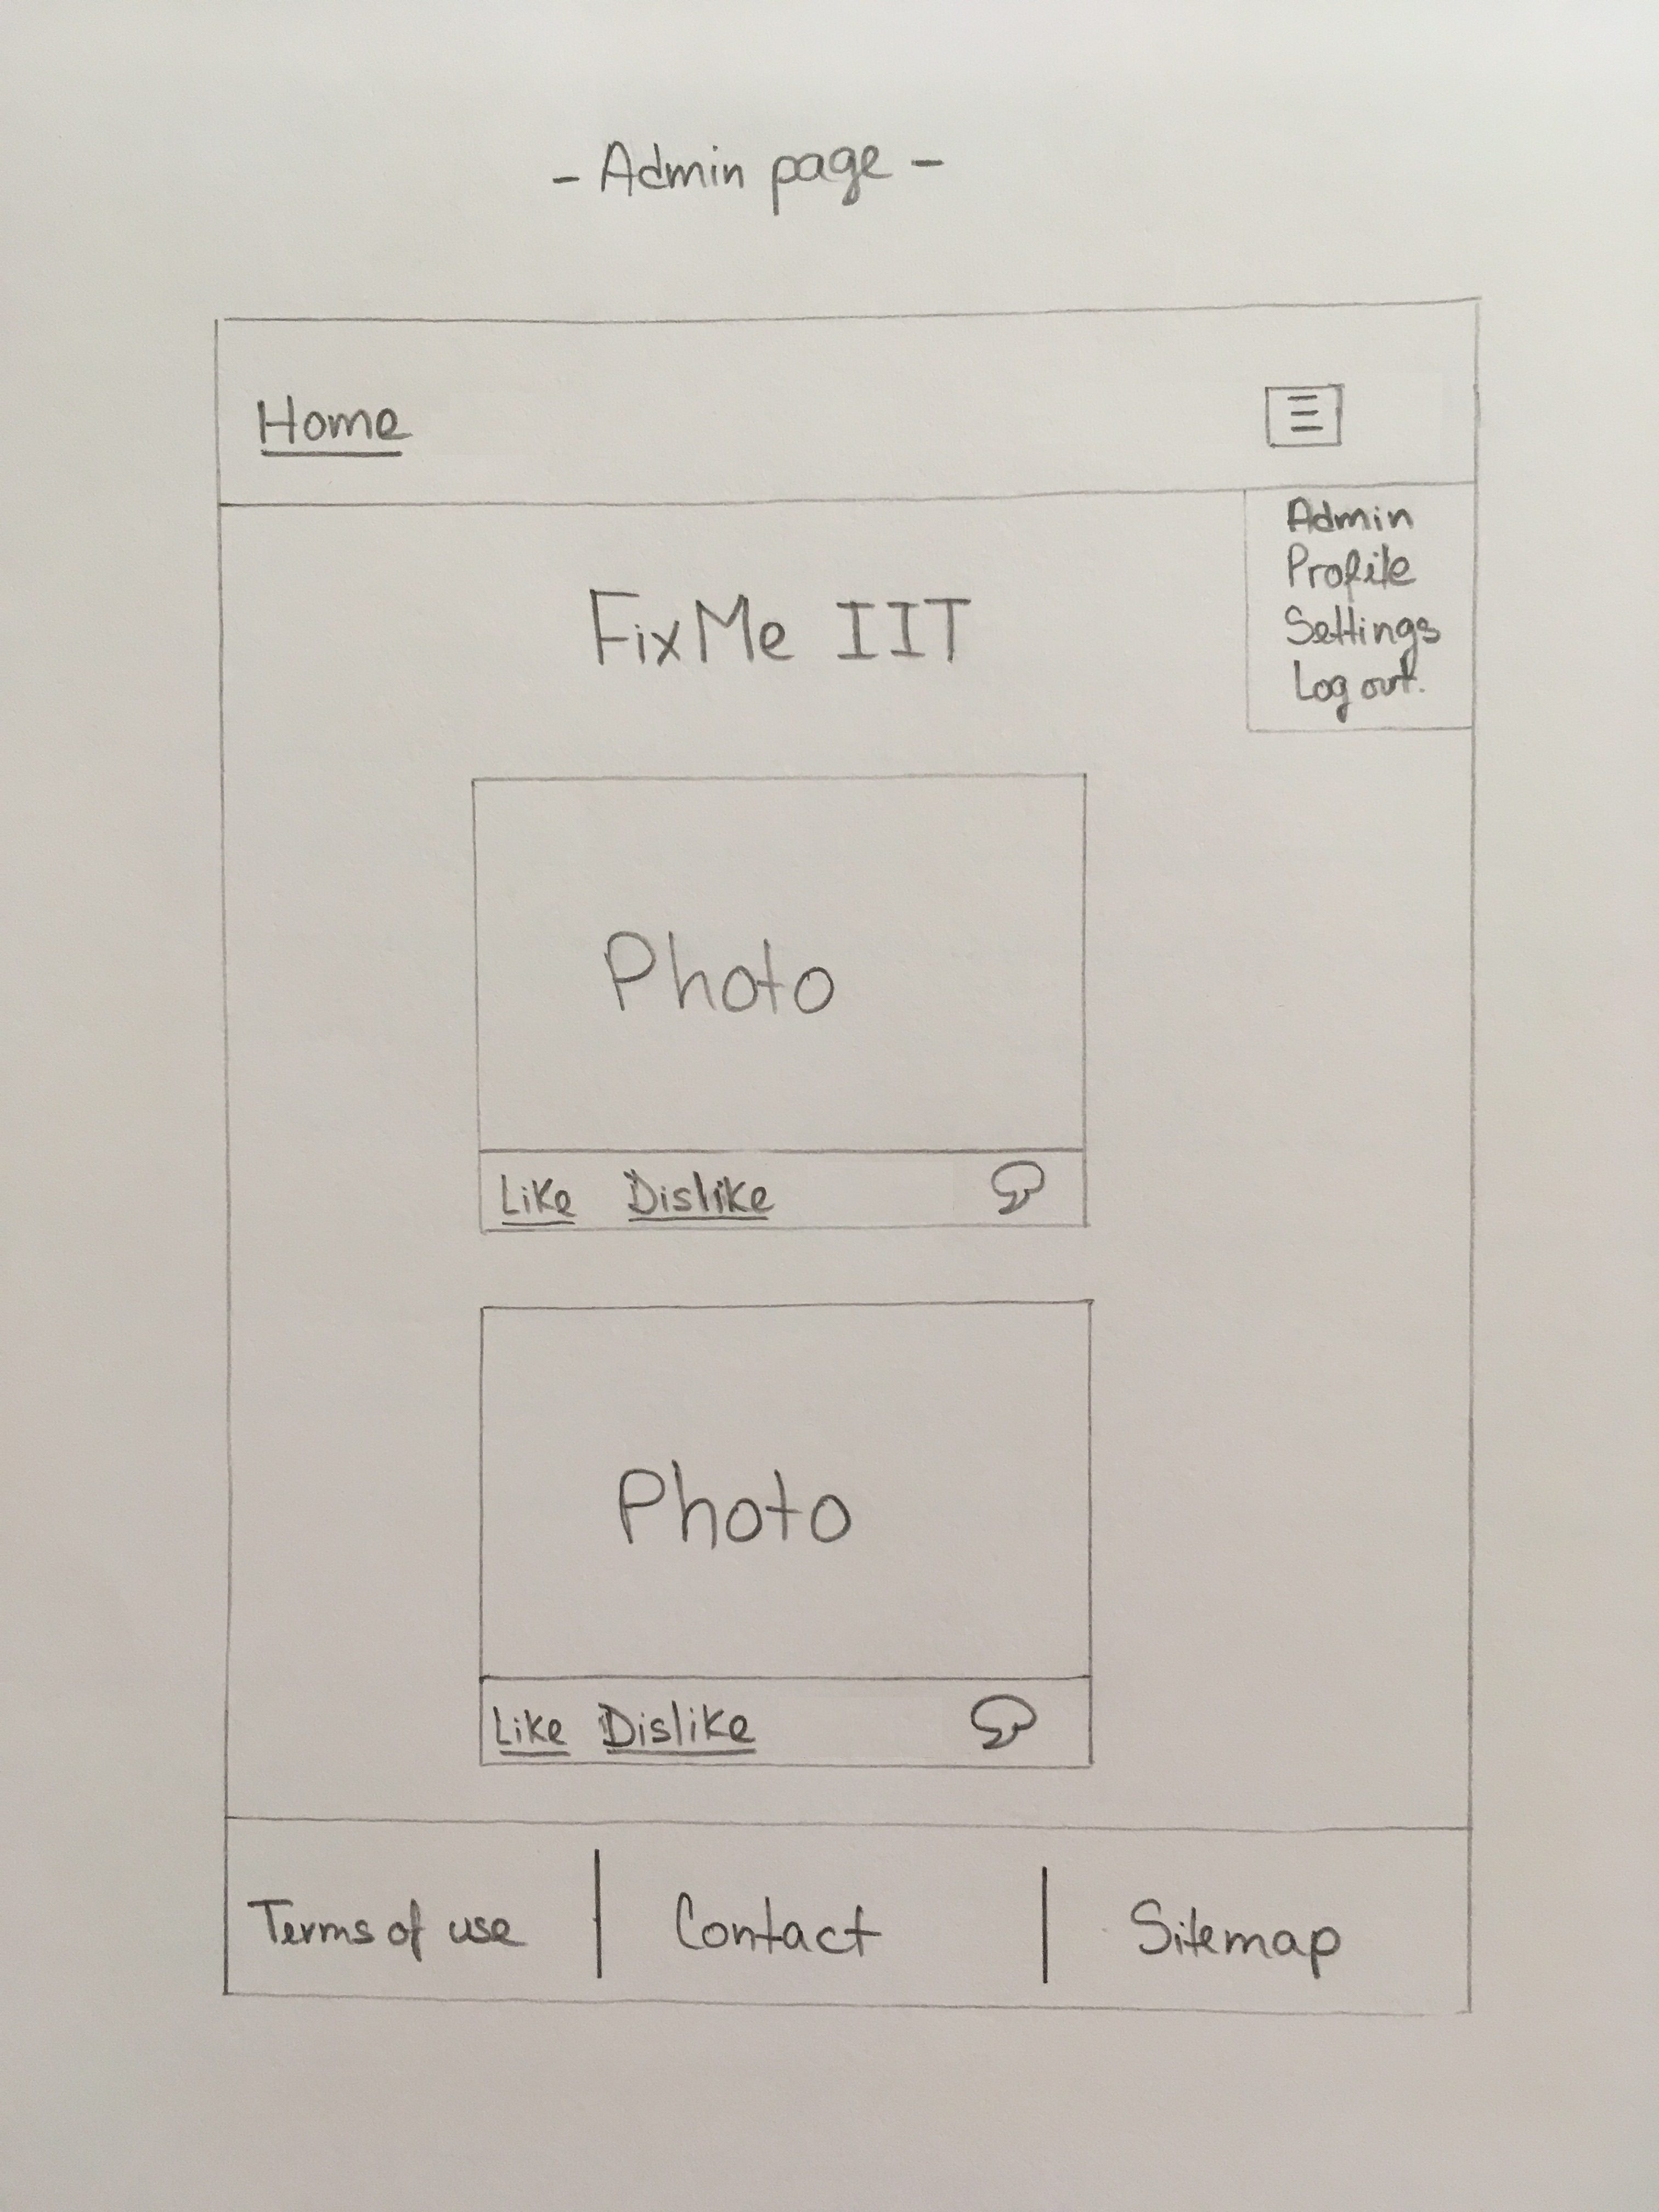 - Admin page -
Home
Admin
Profile
Settings
Log out.
FixMe IIT
Photo
Like Dislike
Photo
Like Dislike
Terms of use | Contact | Sitemap